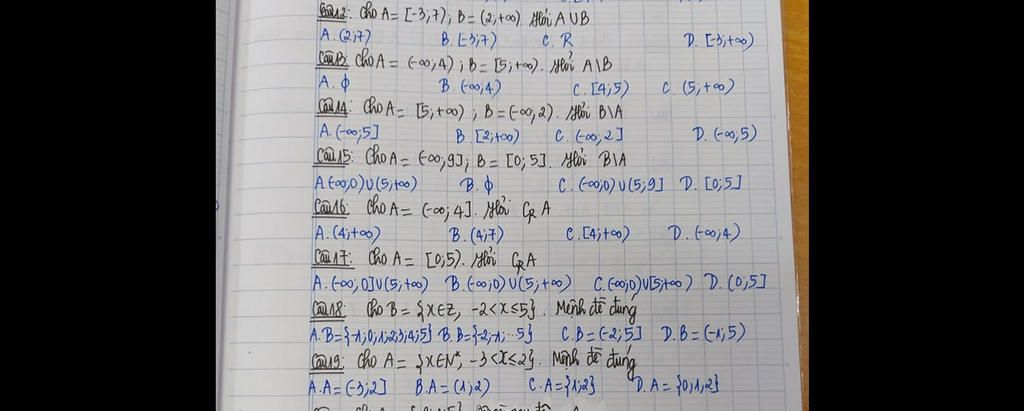 Câu 12: Cho A = [-3;7), B = (2,+∞) Hỏi A∪B
A. (2;7) B. [-3;7) C. R D. [-3;+∞)
Câu 13: Cho A = (-∞;4) ; B = [5;+∞). Hỏi A\B
A. ϕ B. (-∞;4) C. [4;5) C. (5;+∞)
Câu 14: Cho A = [5,+∞) ; B = (-∞,2). Hỏi B\A
A. (-∞;5] B. [2;+∞) C. (-∞,2] D. (-∞,5)
Câu 15: Cho A = (-∞;9]; B = [0;5]. Hỏi B\A
A (-∞;0)∪(5;+∞) B. ϕ C. (-∞;0)∪(5;9] D. [0;5]
Câu 16: Cho A = (-∞;4]. Hỏi CRA
A. (4;+∞) B. (4;7) C. [4;+∞) D. (-∞;4)
Câu 17: Cho A = [0;5). Hỏi CRA
A. (-∞;0]∪(5;+∞) B. (-∞;0)∪(5;+∞) C. (-∞;0)∪[5;+∞) D. (0;5]
Câu 18: Cho B = {x∈Z, -2<x≤5}. Mệnh đề đúng
A. B={-1;0;1;2;3;4;5} B. B={-2;-1;...5} C. B=(-2;5] D. B=(-1;5)
Câu 19: Cho A = {x∈N*, -3<x≤2}. Mệnh đề đúng
A. A=(-3;2] B. A=(1;2) C. A={1;2} D. A={0,1,2}